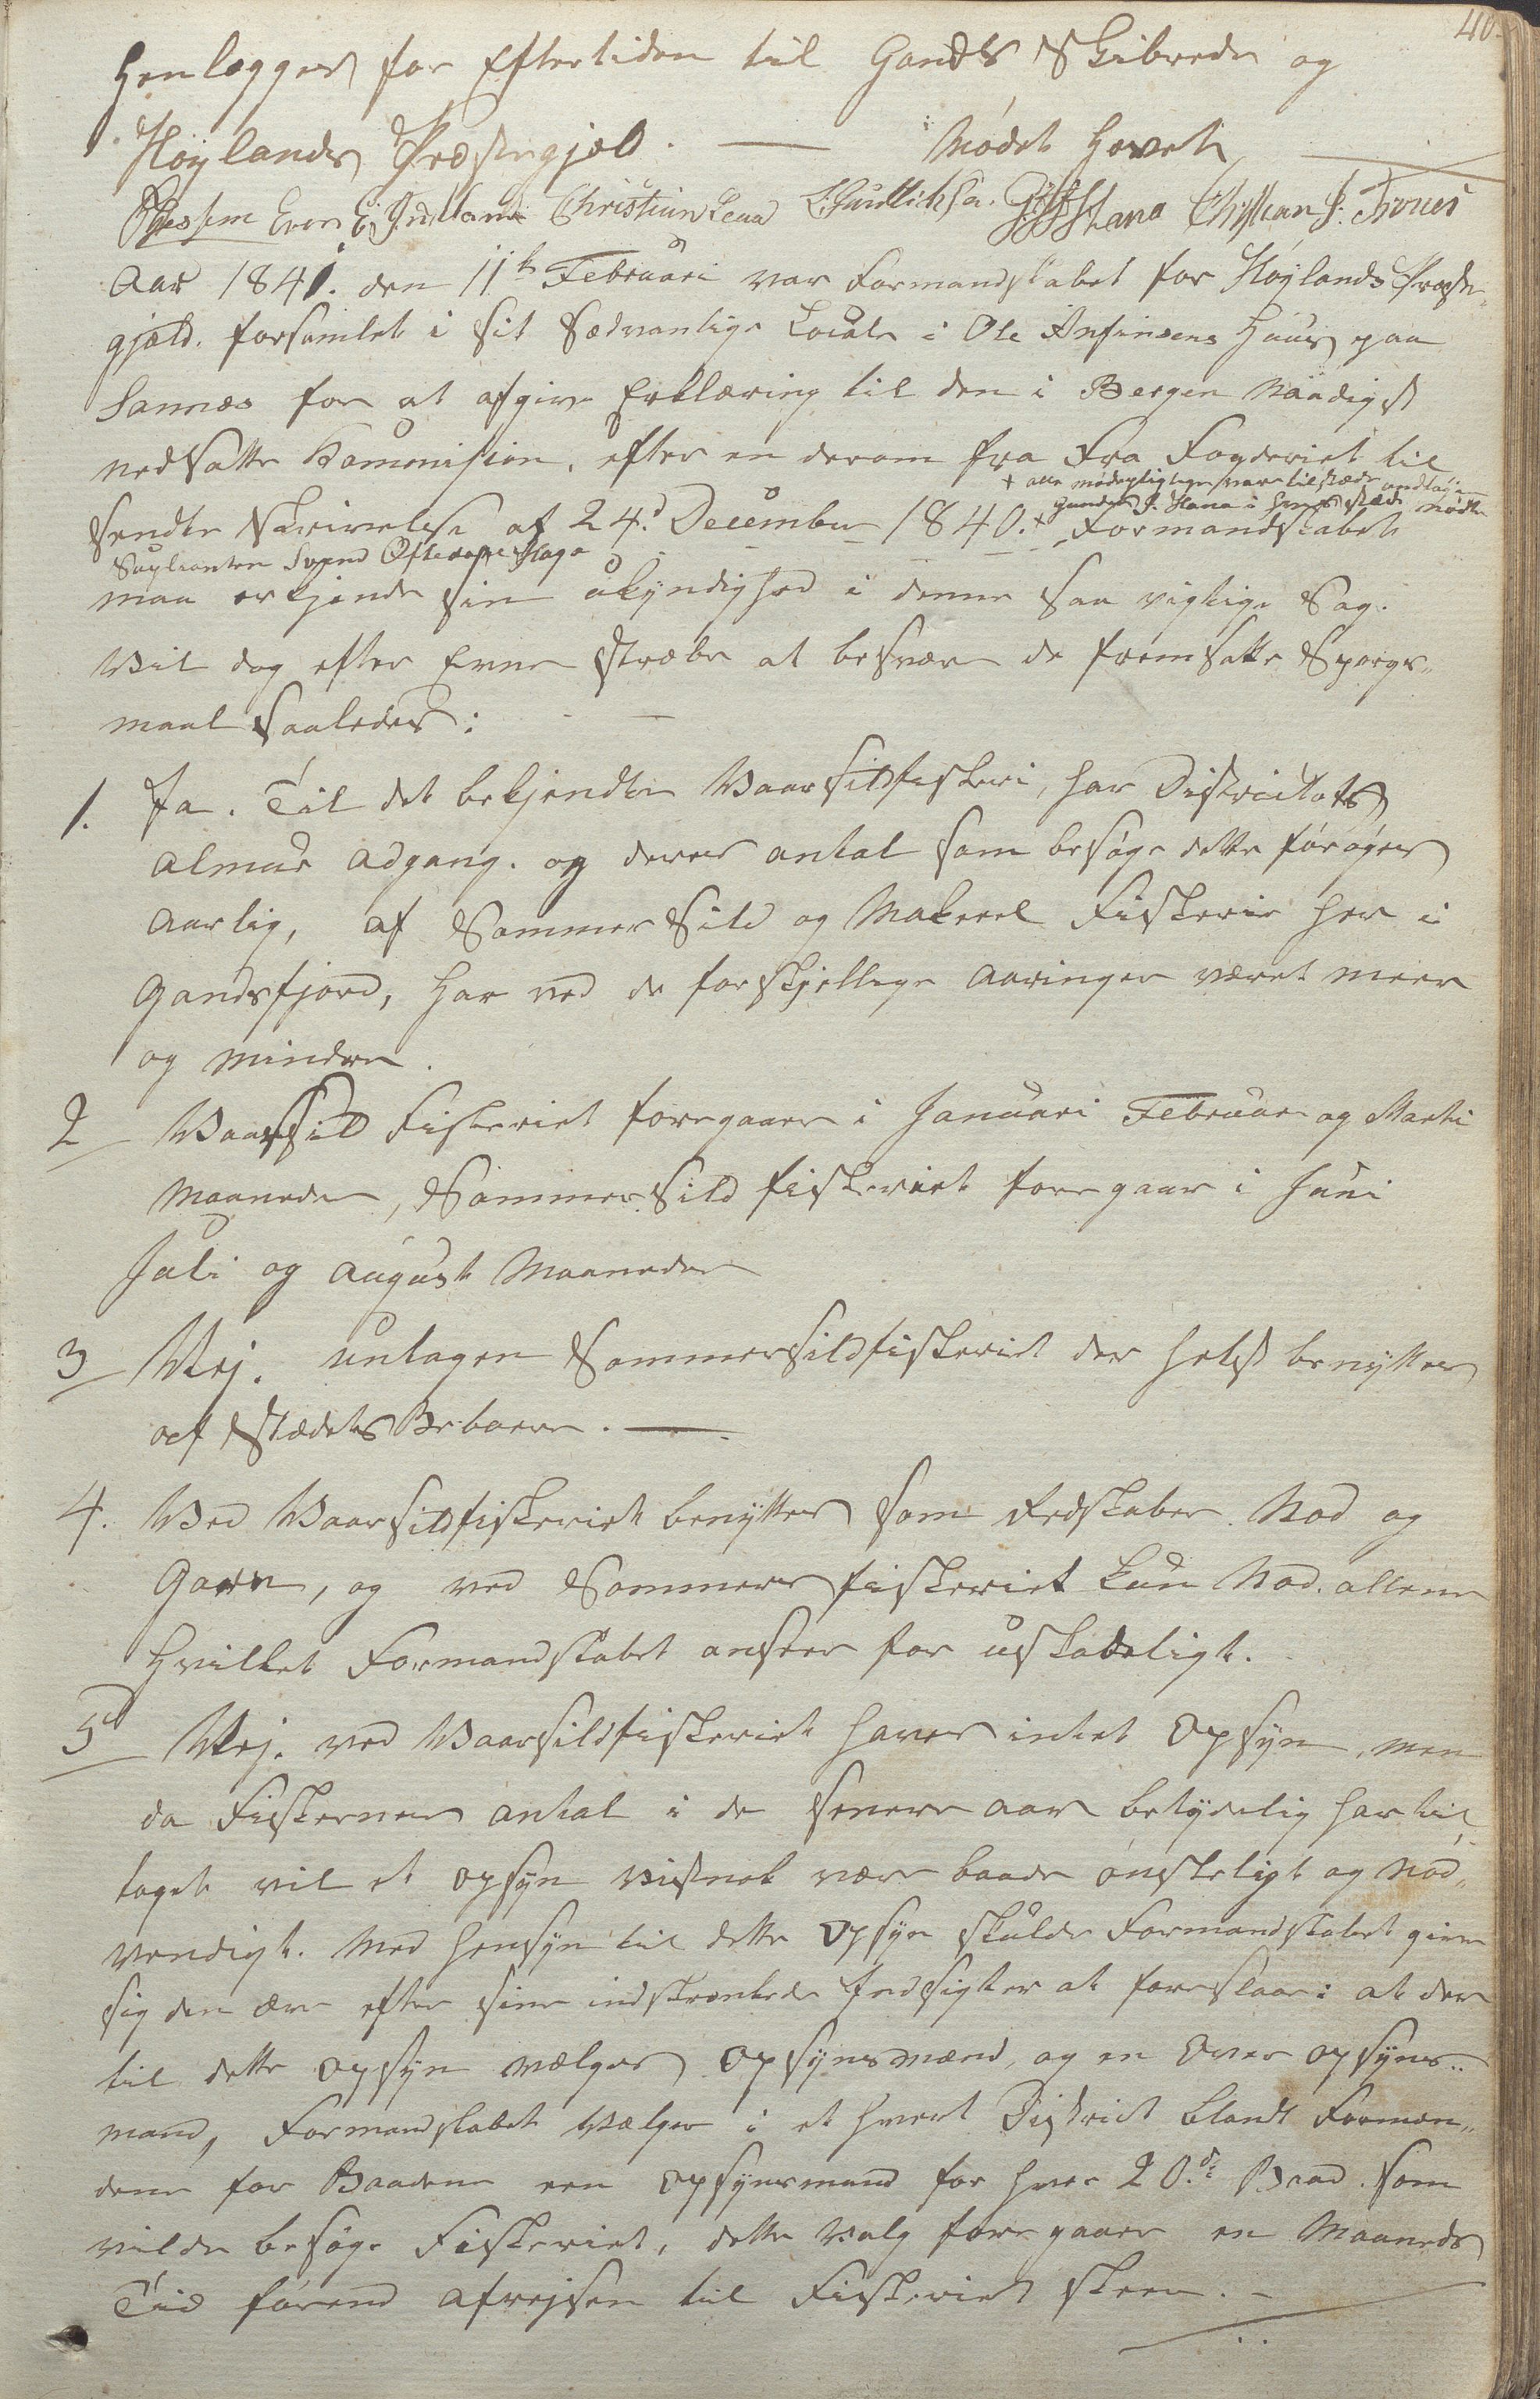 40.
Henlægges for Eftertiden til Gands Skibrede og
Høylands Præstegjæld. — Mødet hævet
Even E. Christian Lena Christian J. Troues
Aar 1841. den 11te Februari var Formandskabet for Høylands Præste-
gjæld. forsamlet i sit sædvanlige Locale i Ole Ansinsens Huus paa
Sannæs for at afgive Erklæring til den i Bergen Naadigst
nedsatte Kommission, efter en derom fra Fra Fogderiet til
+ alle mødepligtige vare tilstæde undtagen
sendte Skrivelse af 24.d December 1840.+ Formandskabet
Gunder J. Hana i hvis stæd mødte
Suplianten Svend Haga
maa erkjende sin ukyndighed i denne saa vigtige Sag.
Vil dog efter Evne stræbe at besvare de fremsatte Spørgs-
maal saaledes:
1. Ja. Til det bekjendte Vaarsildfiskeri, har Districtets
Almue adgang. og deres antal som besøge dette forøges
aarlig, af Sommer Sild og Makrel Fiskerie her i
Gandsfjord, har ved de forskjellige Aaringer været meer
og mindre.
2 Vaarsild Fiskeriet foregaaer i Januari Februar og Marti
Maaneder, Sommersild fiskeriet foregaar i Juni
Juli og August Maaneder
3 Nej. untagen Sommersildfiskeriet der helst benyttes
af Stædets Beboere. —
4. Ved Vaarsildfiskeriet benyttes som Redskaber. Nod og
Garn, og ved Sommerfiskeriet kun Nod. allene
hvilket Formandskabet anseer for uskadeligt.
5 Nej. ved Vaarsildfiskeriet haves intet Opsyn, men
da Fiskernes antal i de senere aar betydelig har til
taget vil et opsyn vistnok være baade ønskeligt og nød-
vendigt. Med Hensyn til dette Opsyn skulde Formandskabet give
sig den ære efter sine indskrænkede Indsigter at foreslaae: at der
til dette opsyn vælges Opsynsmænd, og en Over opsyns-
mand, Formandskabet vælger i et hvert District blandt Formæn-
dene for Baadene een opsynsmand for hver 20.de Baad. som
vilde besøge Fiskeriet, dette Valg foregaaer en Maaneds
Tid førend afrejsen til Fiskeriet skeer. —